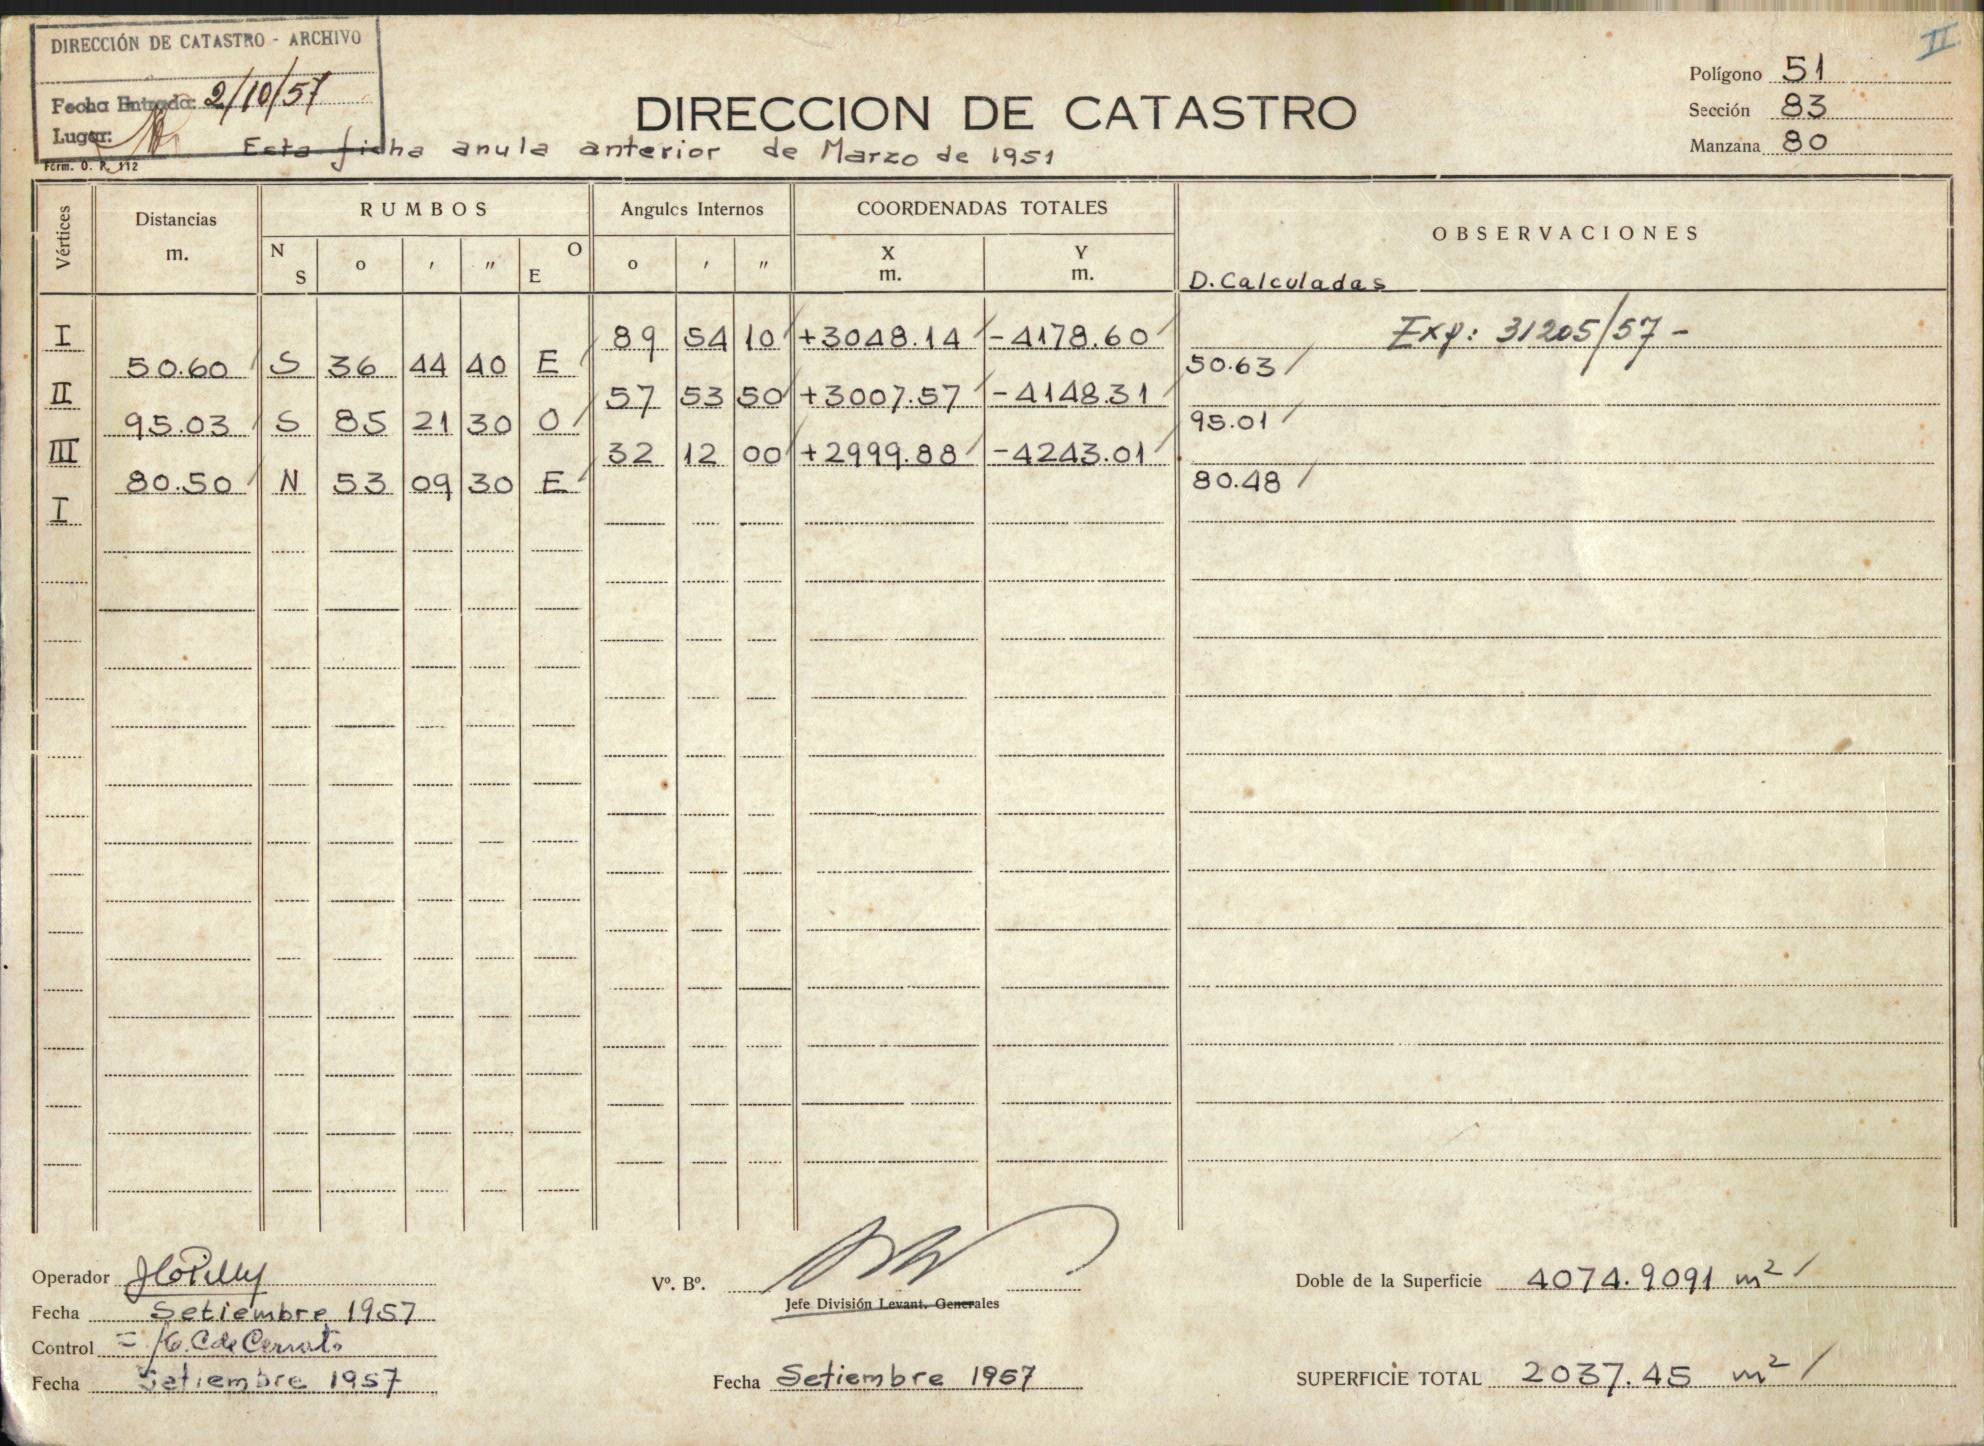 II
DIRECCIÓN DE CATASTRO - ARCHIVO
Fecha Entrada: 2/10/57
Lugar:
Form. O. P. 112
DIRECCION DE CATASTRO
Esta ficha anula anterior de Marzo de 1951
Polígono 51
Sección 83
Manzana 80
Vértices Distancias m. RUMBOS N S o ′ ″ O E Angulos Internos o ′ ″ COORDENADAS TOTALES X m. Y m. OBSERVACIONES
D. Calculadas
I 89 54 10 +3048.14 -4178.60 Exp: 31205/57 -
50.60 S 36 44 40 E 50.63
II 57 53 50 +3007.57 -4148.31
95.03 S 85 21 30 O 95.01
III 32 12 00 +2999.88 -4243.01
80.50 N 53 09 30 E 80.48
I
Operador
Fecha Setiembre 1957
Control
Fecha Setiembre 1957
Vº. Bº.
Jefe División Levant. Generales
Fecha Setiembre 1957
Doble de la Superficie 4074.9091 m²
SUPERFICIE TOTAL 2037.45 m²